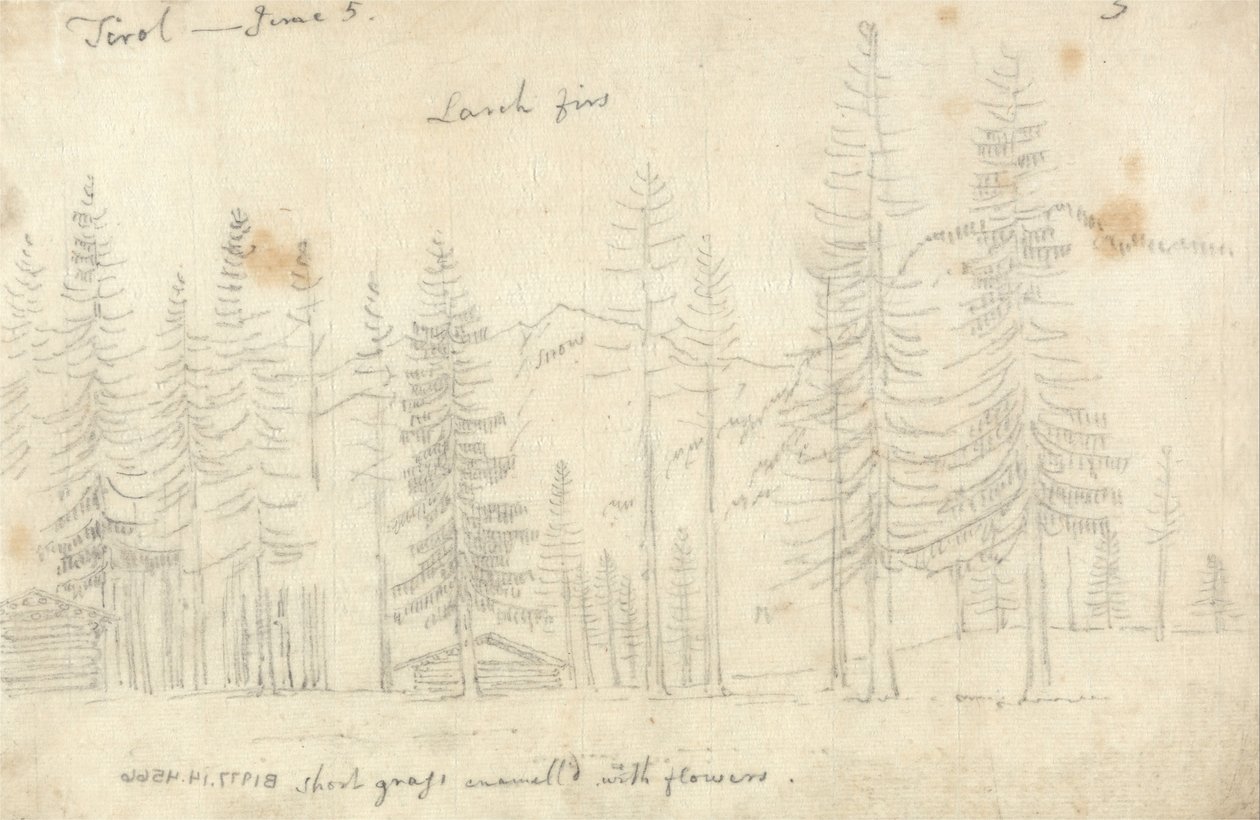 Tirol — June 5.
5
Larch firs
snow
B1977.14.4566
short grass enamell'd with flowers.